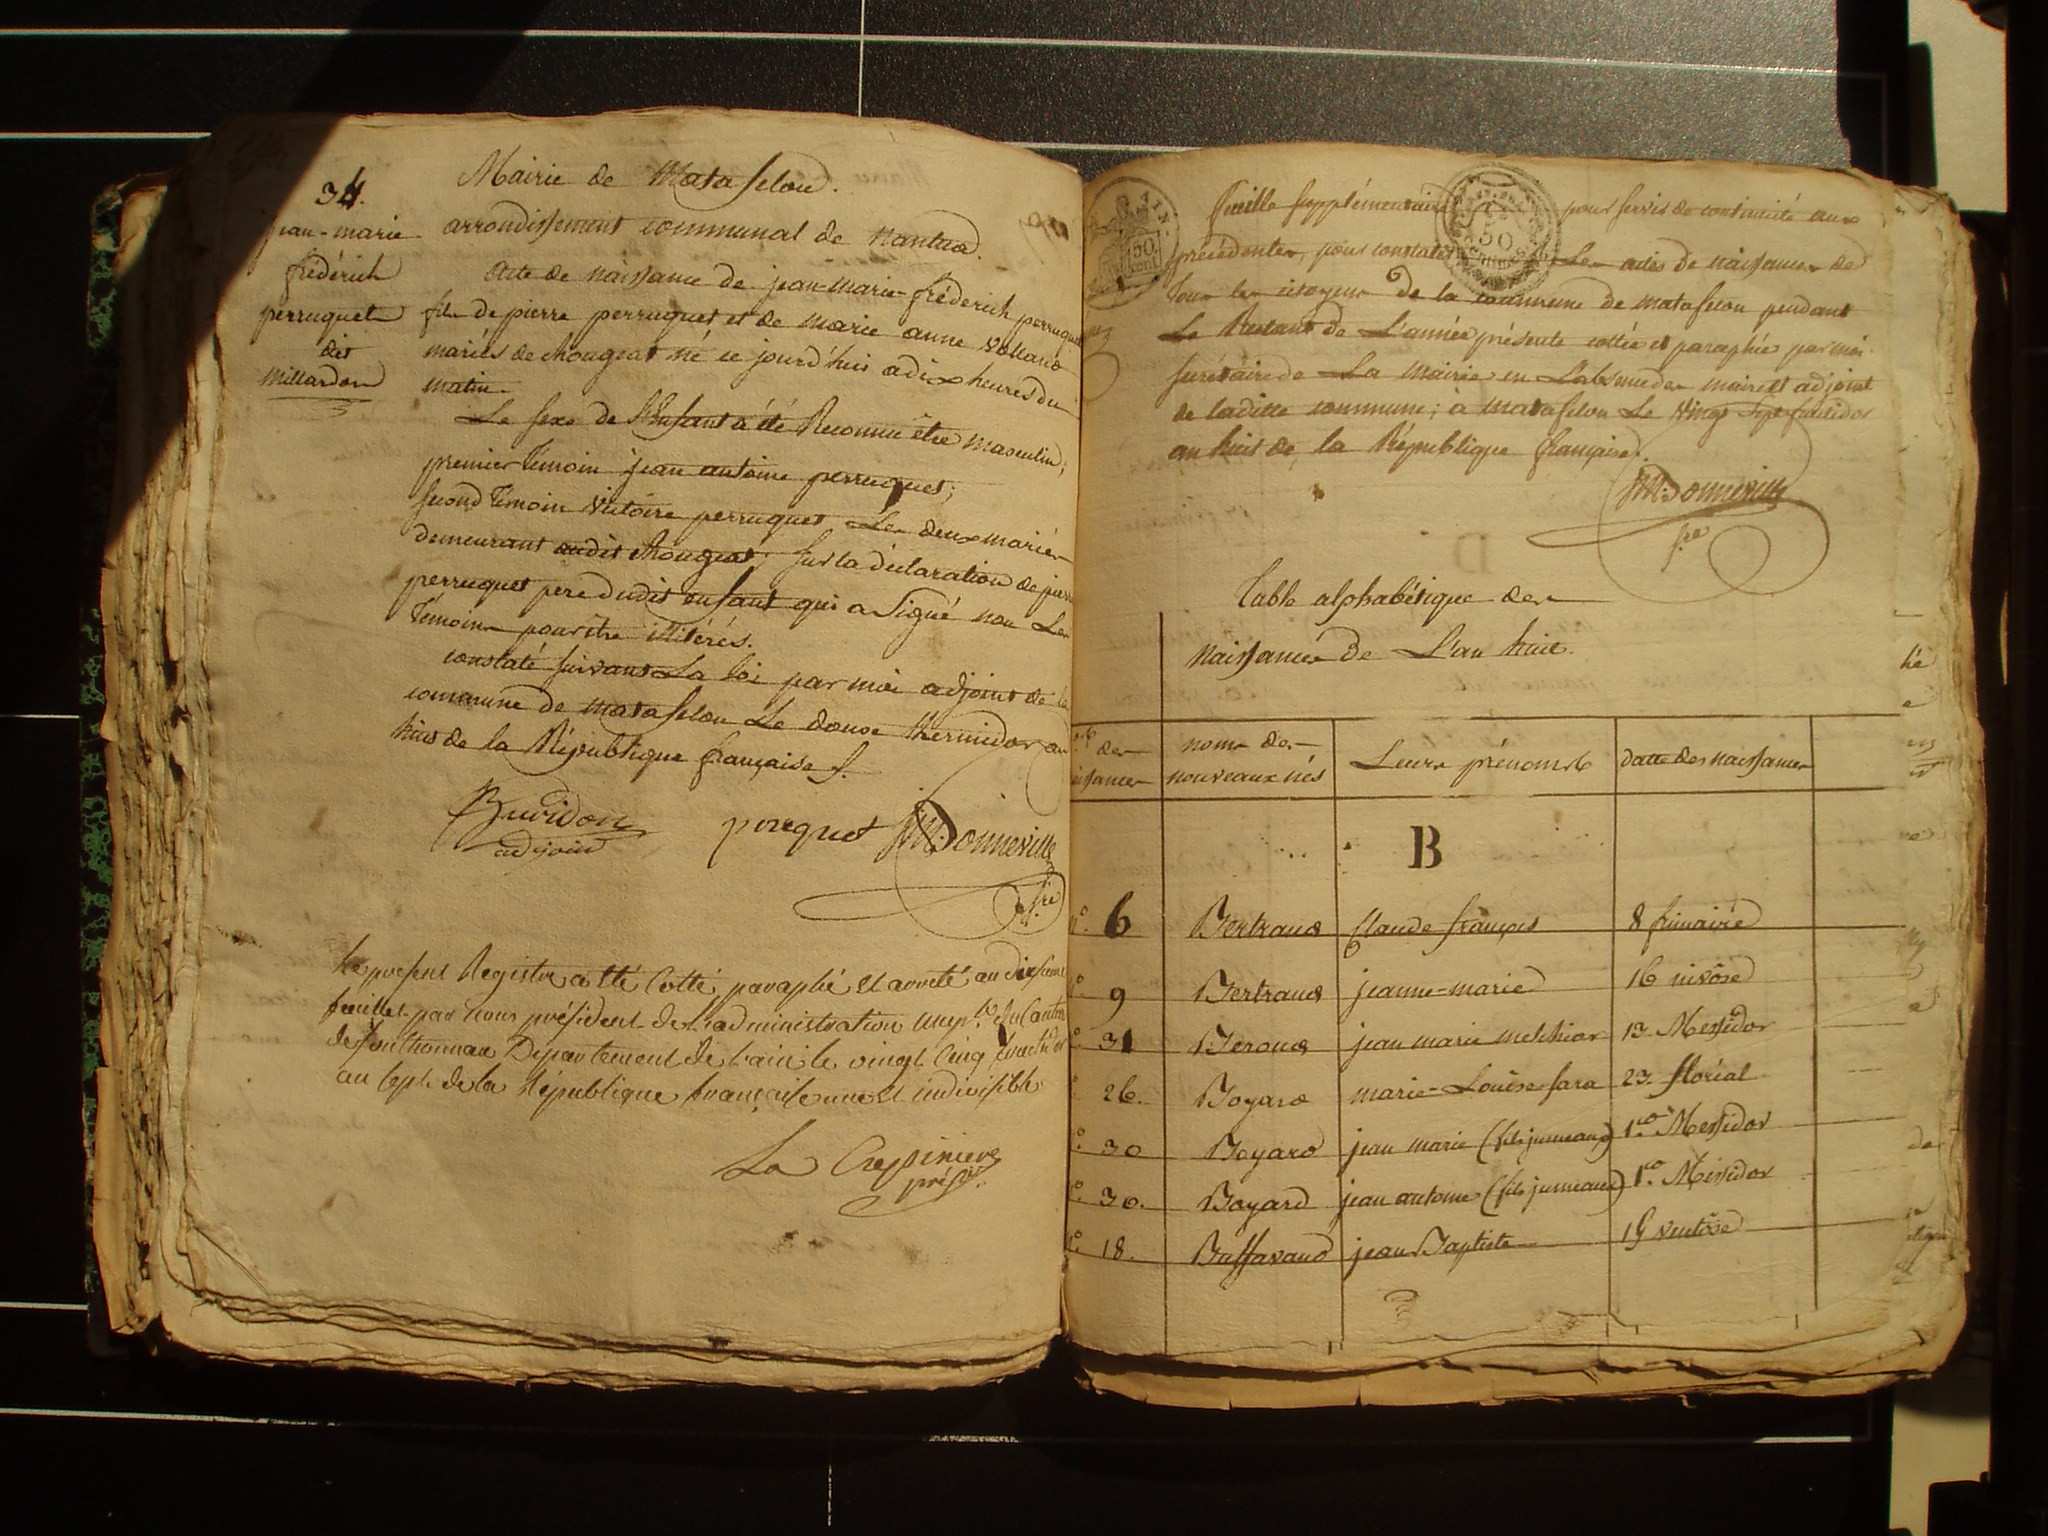 34.
jean-marie
frédérich
perruquet
dit
Millardon
Mairie de Matafelon.
arrondissement communal de Nantua.
Acte de naissance de jean-marie-fréderich perruquet
fils de pierre perruquet et de marie anne Volland
mariés de Chougeat né ce jourd'hui a dix heures du
matin.
Le sexe de l'Enfant a été Reconnu être masculin;
premier Témoin jean antoine perruquet;
second Témoin Victoire perruquet Les deux mariés
demeurant audit Chougeat, sur la déclaration de pierre
perruquet pere dudit enfant qui a Signé non Les
Témoins pour être illitérés.
constaté suivant La loi par moi adjoint de la
commune de matafelon Le douse thermidor an
huit de la République française.
Buvidon
adjoint
peruquet
JMBonneville
s.re
Le present Registre a été Cotté, paraphé et arreté au dixieme
feuillet par nous président de l'administration munple. du Canton
de Sonthonnax Departement de l'ain le vingt Cinq fructidor
an sept de la République française une et indivisible
La Crepiniere
présidt.
50
cent
50
Feuille supplémentaire pour servir de continuité aux
précédentes, pour constater Les actes de naissances de
Tous les citoyens de la commune de matafelon pendant
Le Restant de L'année présente cottée et paraphée par moi
sécrétaire de La mairie en L'absence des maire et adjoint
de ladite commune; à matafelon Le vingt sept fructidor
an huit de la République française.
JMBonneville
s.re
Table alphabétique des
naissances de L'an huit.
nos. des
naissances
noms des
nouveaux nés
Leurs prénoms
datte des naissances
B
no. 6 Bertrand Claude françois 8 frimaire
no. 9 Bertrand jeanne-marie 16 nivôse
no. 31 Beroud jean marie melchior 13. Messidor
no. 26. Boyard marie-Louise sara 23. floréal
no. 30 Boyard jean marie (fils jumeaux) 1er. Messidor
no. 30. Boyard jean antoine (fils jumeaux) 1er. Messidor
no. 18. Buffavand jean Baptiste 19 ventôse